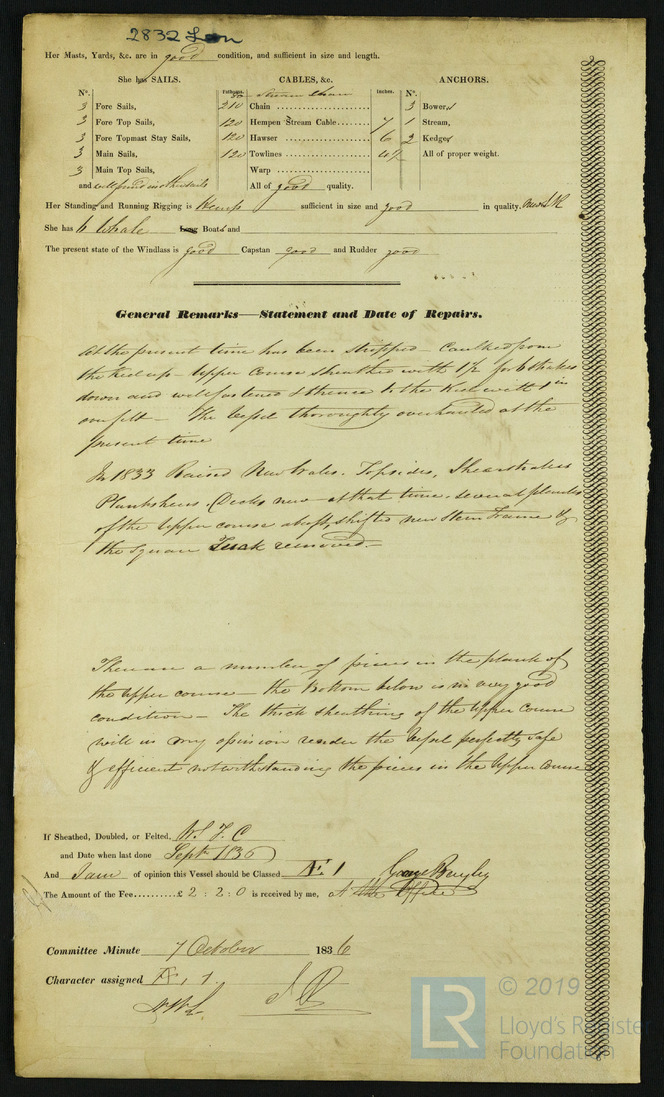 2832 Lon
Her Masts, Yards, &c. are in good condition, and sufficient in size and length.
She has SAILS. CABLES, &c. ANCHORS.
Nº. Fathoms. Inches. Nº.
3 Fore Sails, 210 Chain 3 Bowers
3 Fore Top Sails, 120 Hempen Stream Cable 7 1 Stream,
3 Fore Topmast Stay Sails, 120 Hawser 6 2 Kedges
3 Main Sails, 120 Towlines 4½ All of proper weight.
3 Main Top Sails, Warp
and well found in other sails All of good quality.
Her Standing and Running Rigging is Hemp sufficient in size and good in quality.
She has 6 Whale Long Boats and
The present state of the Windlass is good Capstan good and Rudder good
General Remarks—Statement and Date of Repairs.
At the present time has been stripped – Caulked from
the Keel up – Upper Course sheathed with 1½ for 6 strakes
down and well fastened & thence to the Keel with in
on felt – The Vessel thoroughly overhauled at the
present time
In 1833 Raised New Wales. Topsides, Sheerstrakes
Planksheers. Decks new at that time. several planks
of the Upper course abaft, shifted new Stern Frame &
the Square Tuck removed.
There are a number of pieces in the plank of
the upper course – the Bottom below is in very good
condition – The thick sheathing of the Upper Course
will in my opinion render the Vessel perfectly safe
& efficient notwithstanding the pieces in the Upper Course
If Sheathed, Doubled, or Felted, W S F C
and Date when last done Sept 1836
And I am of opinion this Vessel should be Classed Æ 1
The Amount of the Fee £ 2 : 2 : 0 is received by me, At the Office
Committee Minute 7 October 1836
Character assigned Æ 1
LR
© 2019
Lloyd's Register
Foundation